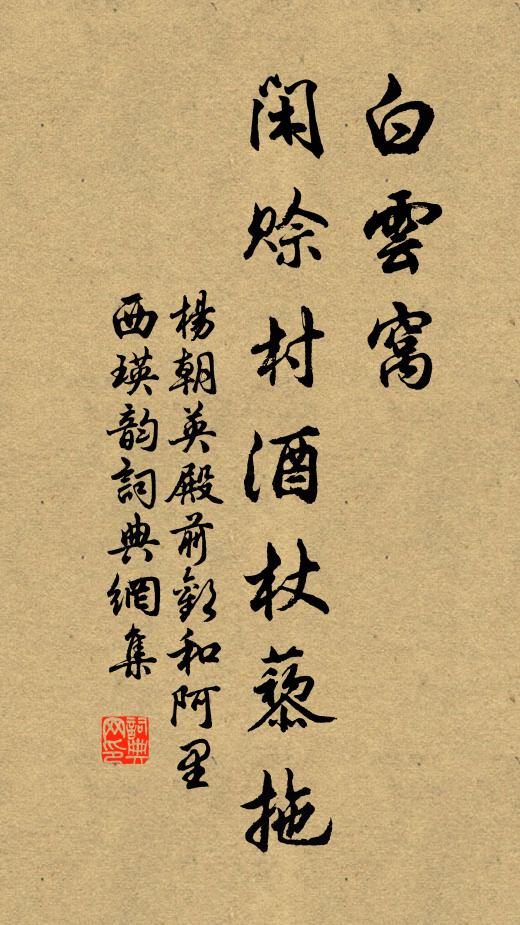 白雲窩
閑賒村酒杖藜拖
楊朝英殿前歡和阿里
西瑛韵詞典網集
詞典
网印